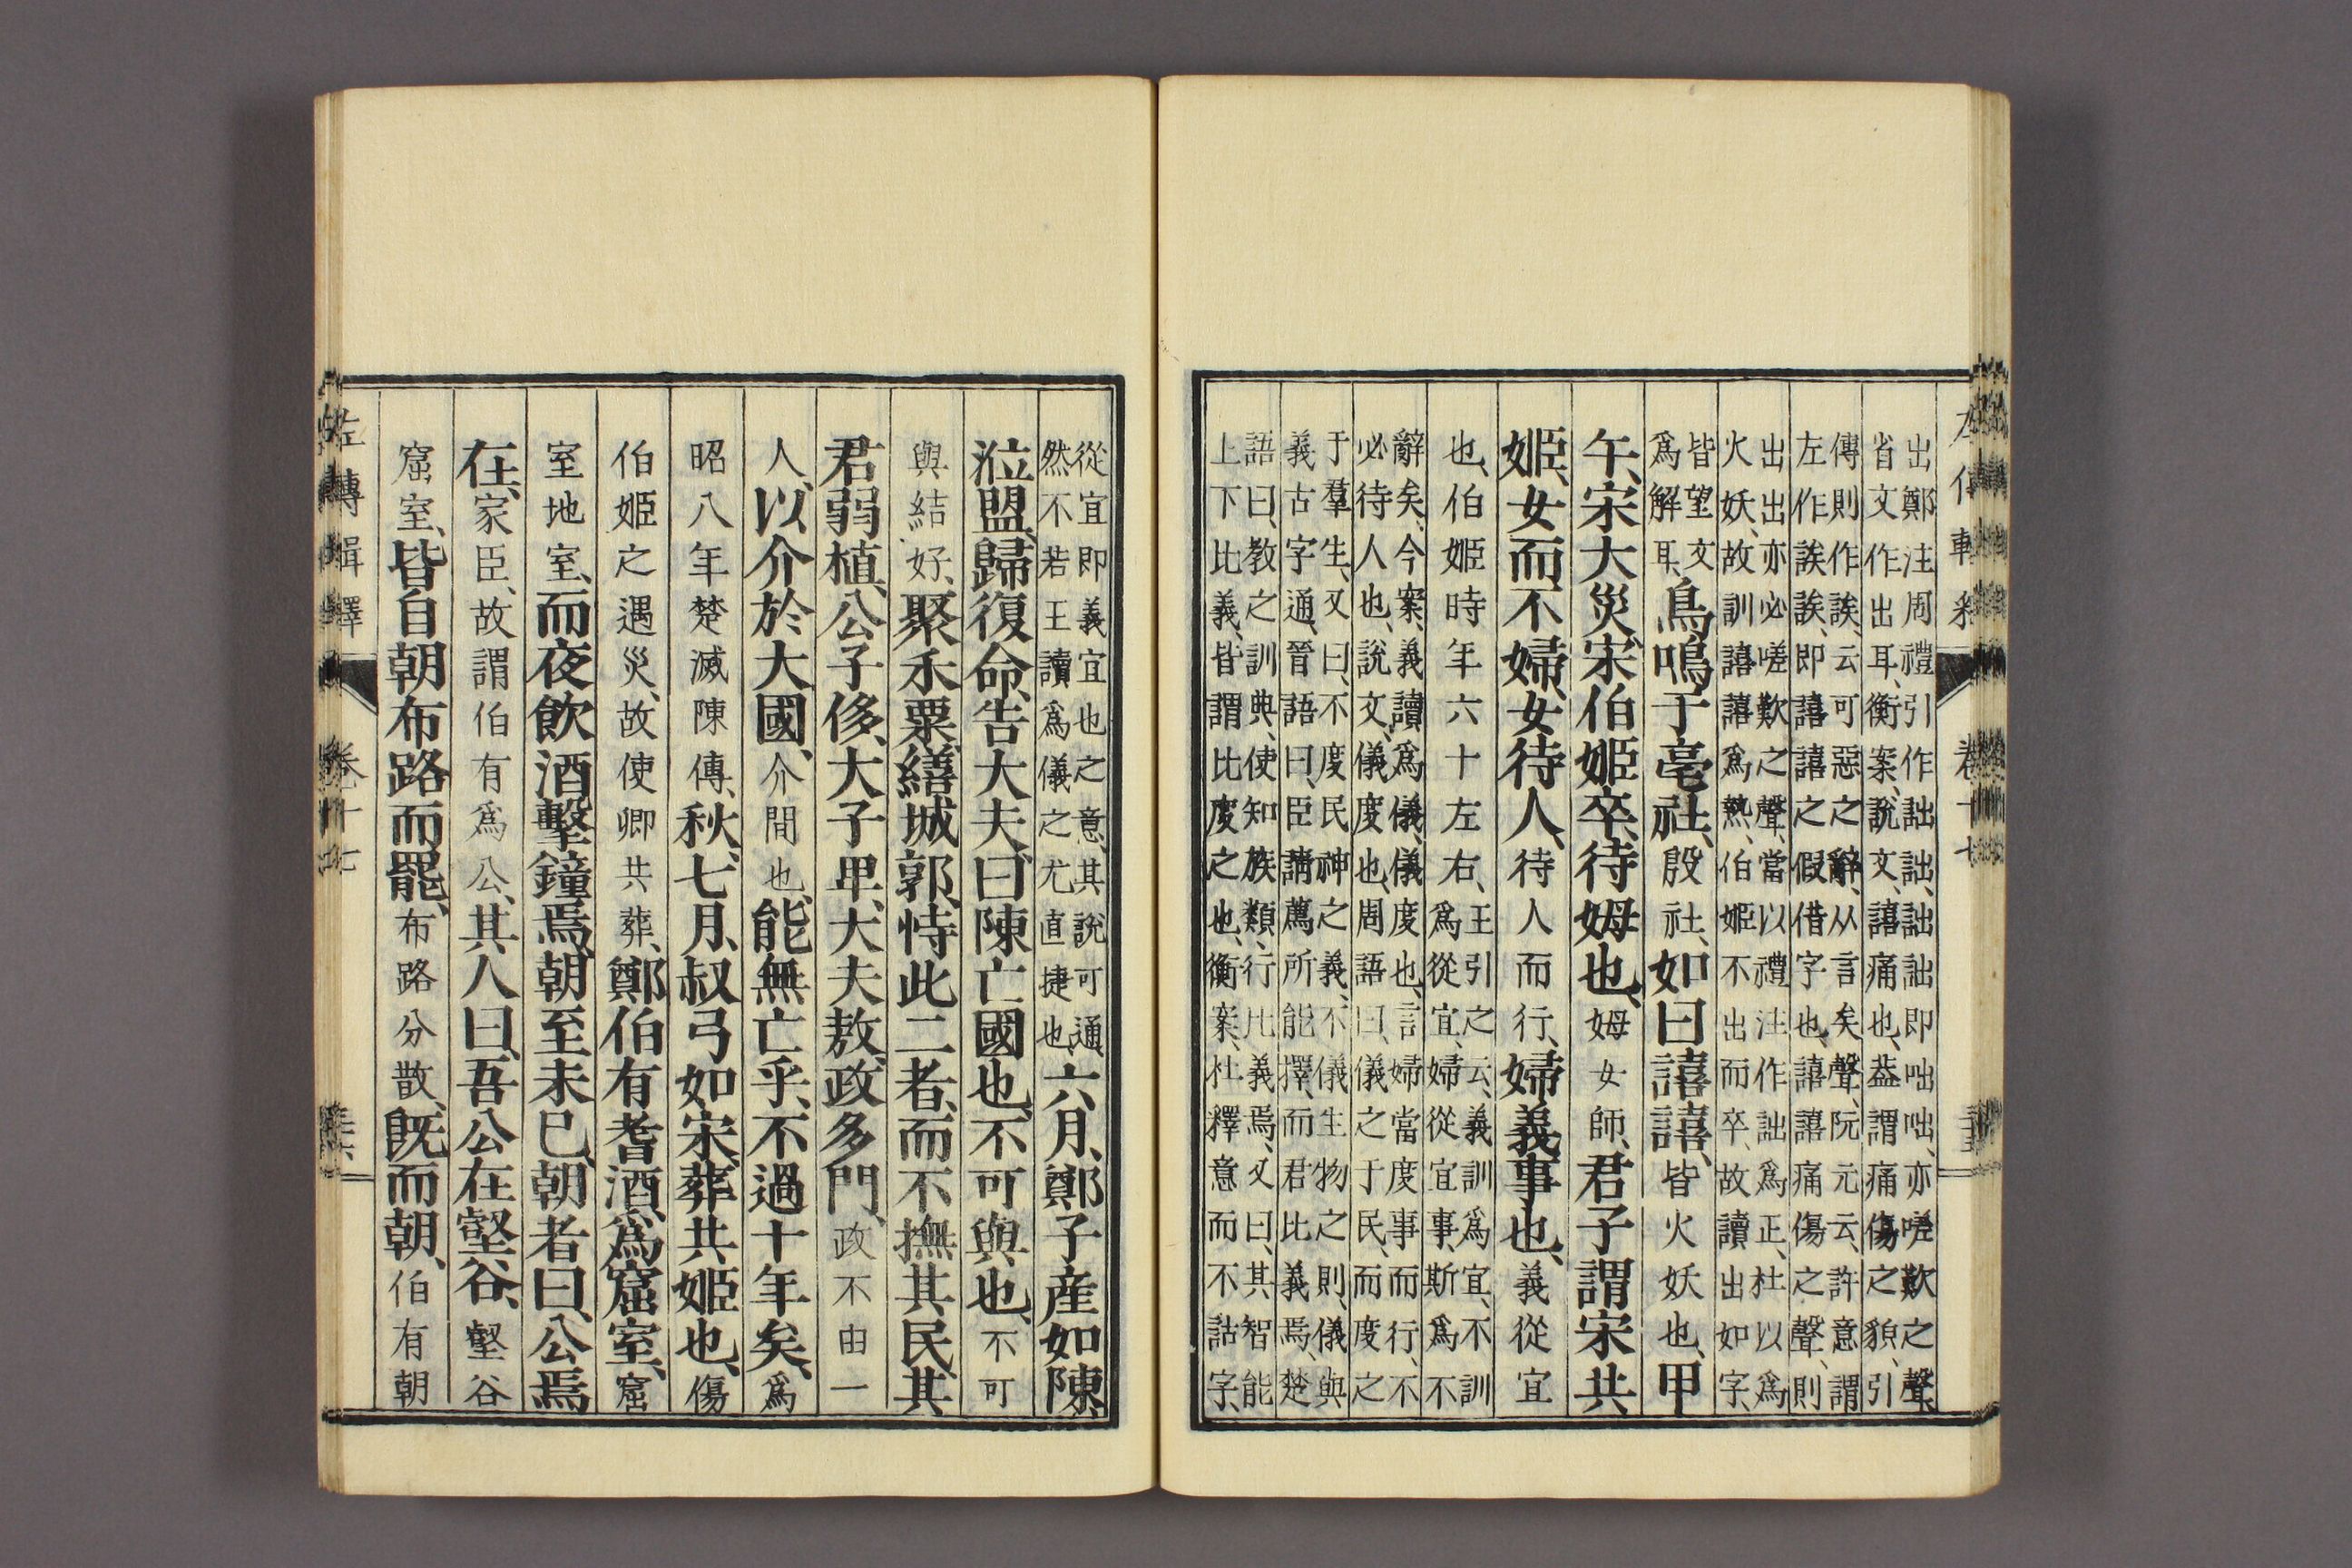 出鄭注周禮引作詘詘、詘詘即咄咄、亦嗟歎之聲、
省文作出耳、衡案、說文、譆痛也、葢謂痛傷之貌、引
傳則作誒誒、云可惡之辭、从言矣聲、阮元云、許意謂
左作誒誒、即譆譆之假借字也、譆譆痛傷之聲、則
出出亦必嗟歎之聲、當以禮注作詘爲正、杜以爲
火妖、故訓譆譆爲熱、伯姬不出而卒、故讀出如字、
皆望文
爲解耳、鳥鳴于亳社、殷社、如曰譆譆、皆火妖也、甲
午、宋大災、宋伯姬卒、待姆也、姆女師、君子謂宋共
姬、女而不婦、女待人、待人而行、婦義事也、義從宜
也、伯姬時年六十左右、王引之云、義訓爲宜、不訓
爲從宜、婦從宜事、斯爲不
辭矣、今案、義讀爲儀、儀度也、言婦當度事而行、不
必待人也、說文、儀度也、周語曰、儀之于民、而度之
于羣生、又曰、不度民神之義、不儀生物之則、儀與
義古字通、晉語曰、臣請薦所能擇、而君比義焉、楚
語曰、教之訓典、使知族類、行比義焉、又曰、其智能
上下比義、皆謂比度之也、衡案、杜釋意而不詁字、
從宜即義宜也之意、其說可通、
然不若王讀爲儀之尤直捷也、六月、鄭子産如陳、
涖盟、歸復命、告大夫、曰、陳亡國也、不可與也、不可
與結好、聚禾粟、繕城郭、恃此二者、而不撫其民、其
君弱植、公子侈、大子卑、大夫敖、政多門、政不由一
人、以介於大國、介間也、能無亡乎、不過十年矣、爲
昭八年楚滅陳傳、秋、七月、叔弓如宋、葬共姬也、傷
伯姬之遇災、故使卿共葬、鄭伯有耆酒、爲窟室、窟
室地室、而夜飲酒擊鐘焉、朝至未已、朝者曰、公焉
在、家臣、故謂伯有爲公、其人曰、吾公在壑谷、壑谷
窟室、皆自朝布路而罷、布路分散、既而朝、伯有朝
左傳輯釋 卷十七